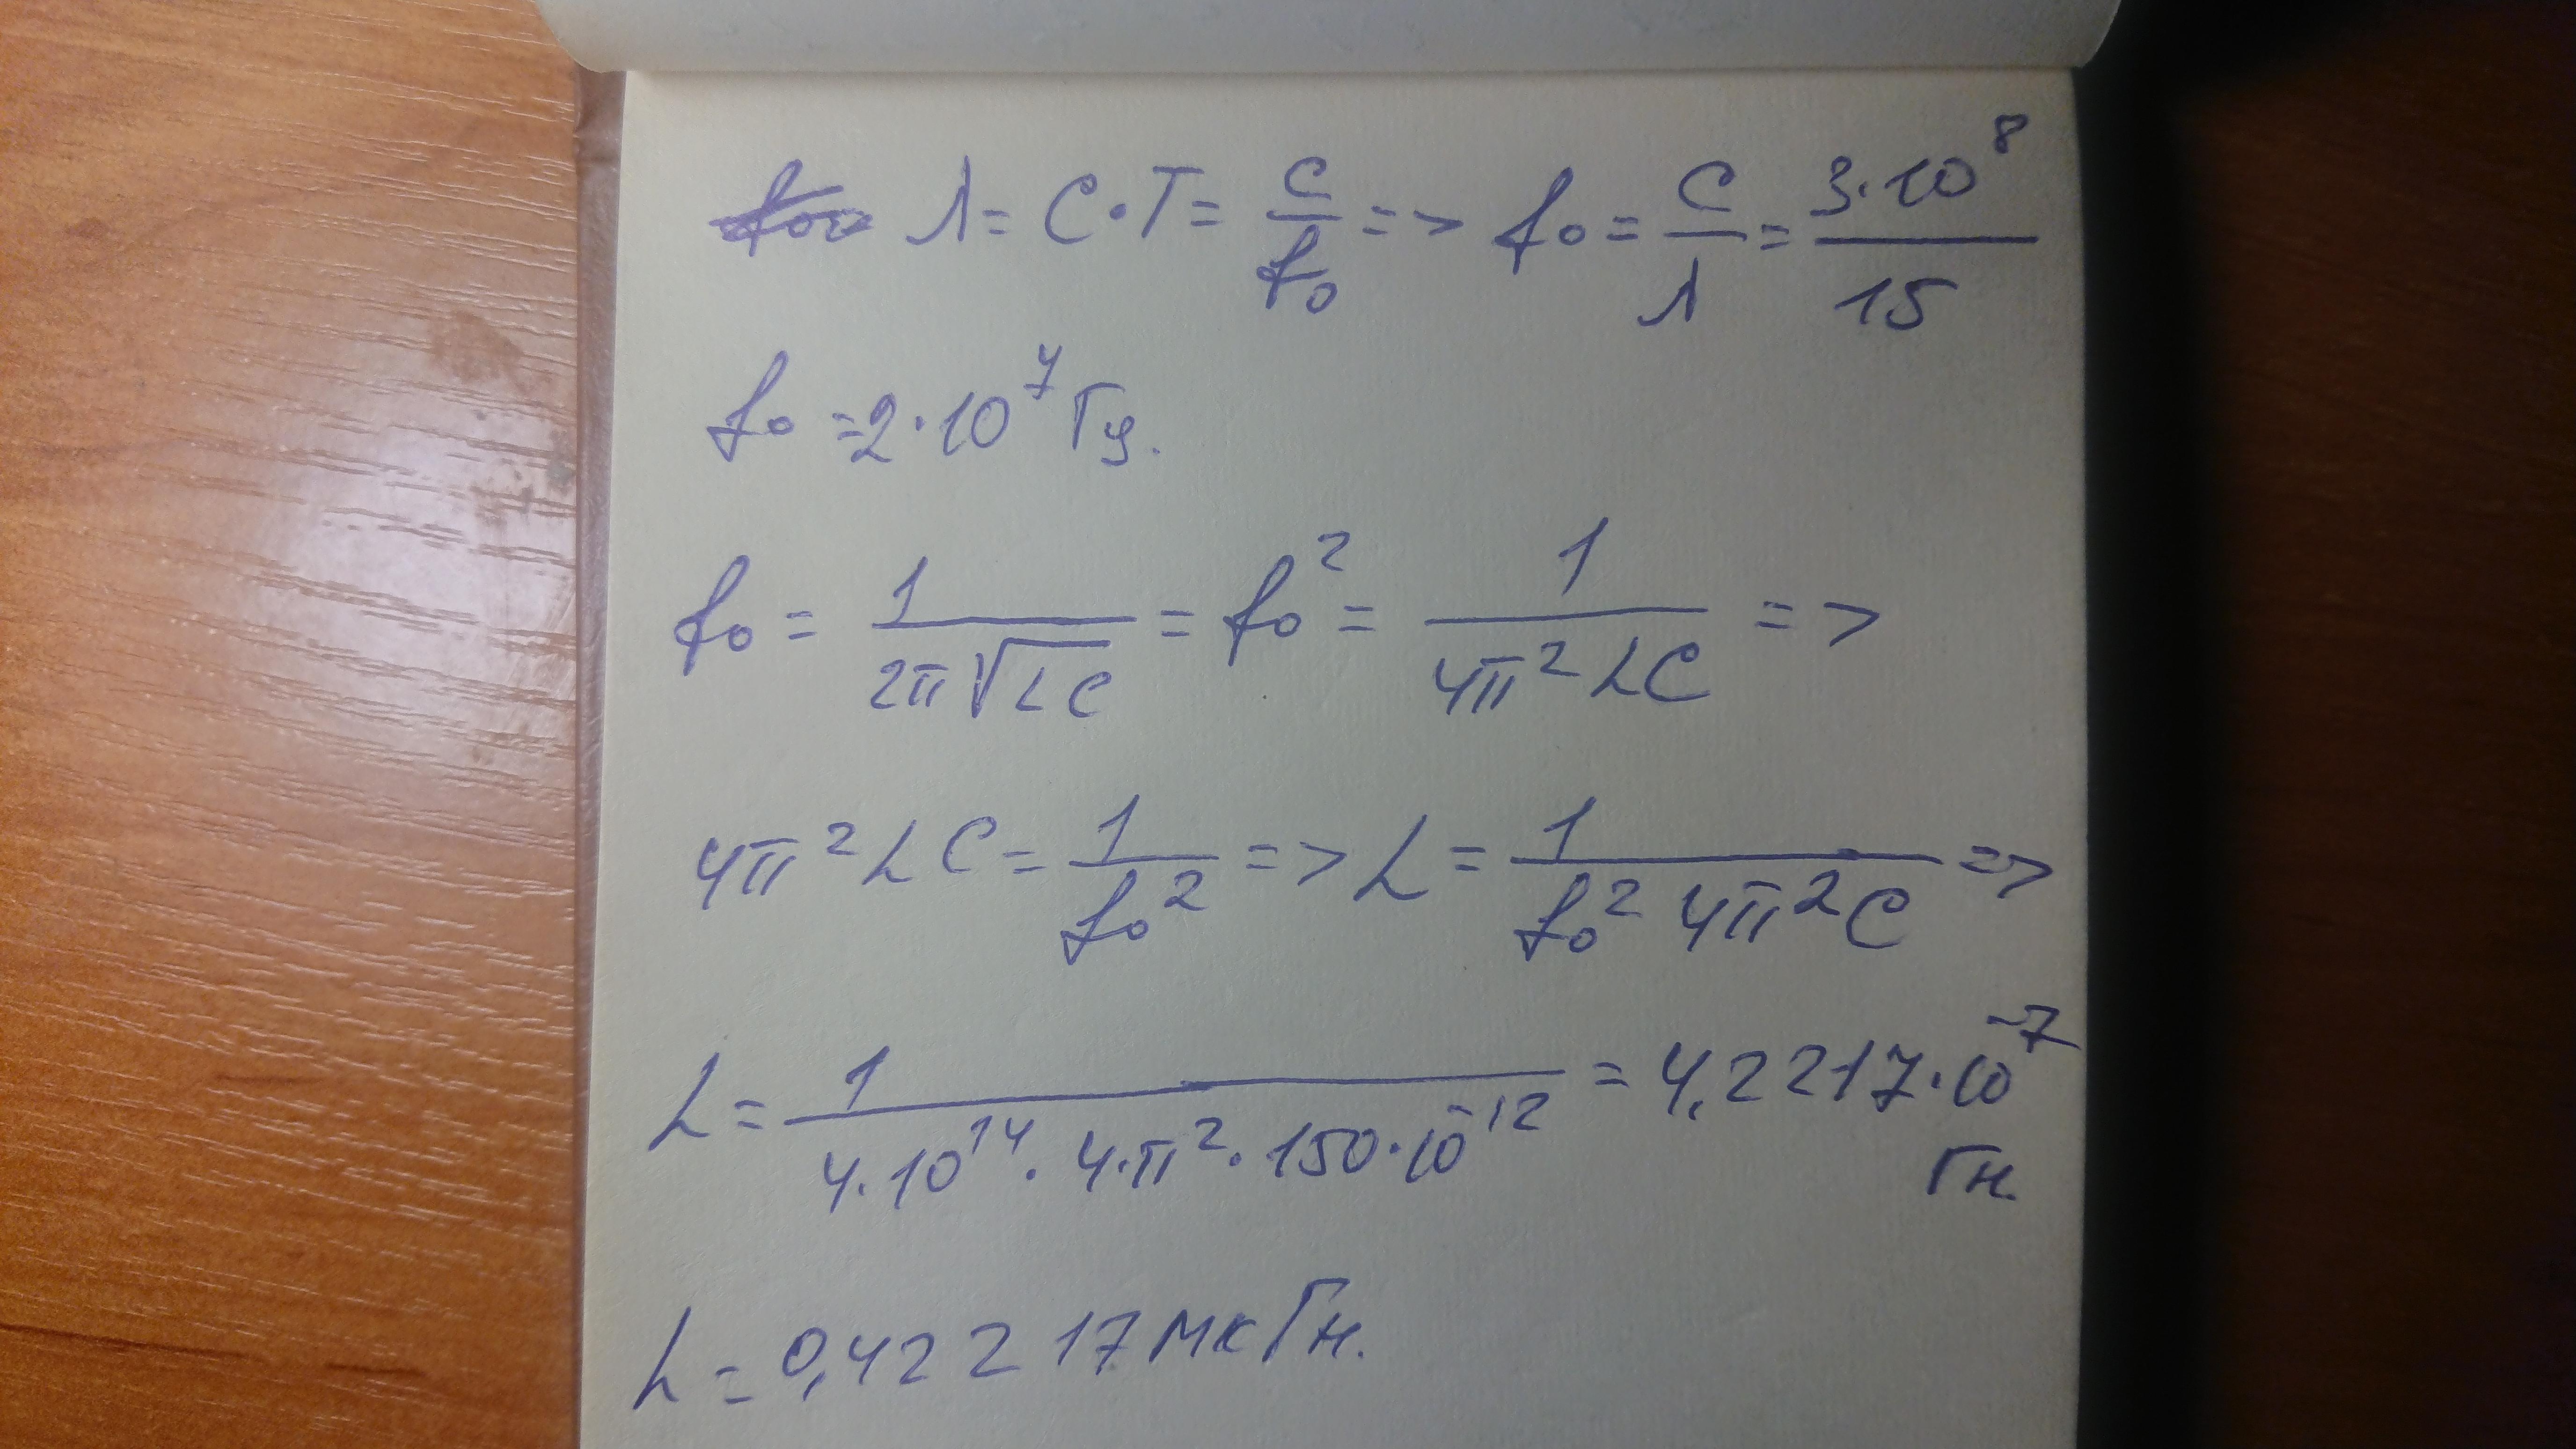 λ = C·T = C/f₀ => f₀ = C/λ = 3·10⁸/15
f₀ = 2·10⁷ Гц.
f₀ = 1/(2π√LC) = f₀² = 1/(4π²LC) =>
4π²LC = 1/f₀² => L = 1/(f₀² 4π²C) =>
L = 1/(4·10¹⁴·4·π²·150·10⁻¹²) = 4,2217·10⁻⁷ Гн.
L = 0,42217 мкГн.